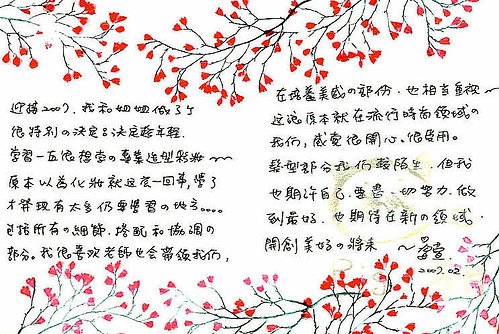 迎接2007，我和姐姐做了
很特別の決定：決定趁年輕
學習一直很想學の專業造型彩妝～
原本以為化妝就這麼一回事，學了
才發現有太多仍要學習の地方....
包括所有の細節，搭配和協調の
部分。我很喜歡老師也會帶領我們，
在培養美感の部份，也相當重視
這讓原本就在流行時尚領域の
我們，感覺很開心、很受用。
髮型部分我們較陌生，但我
也期許自己，要盡一切努力，做
到最好，也期待在新の領域，
開創美好の將來 ～
2007.02.